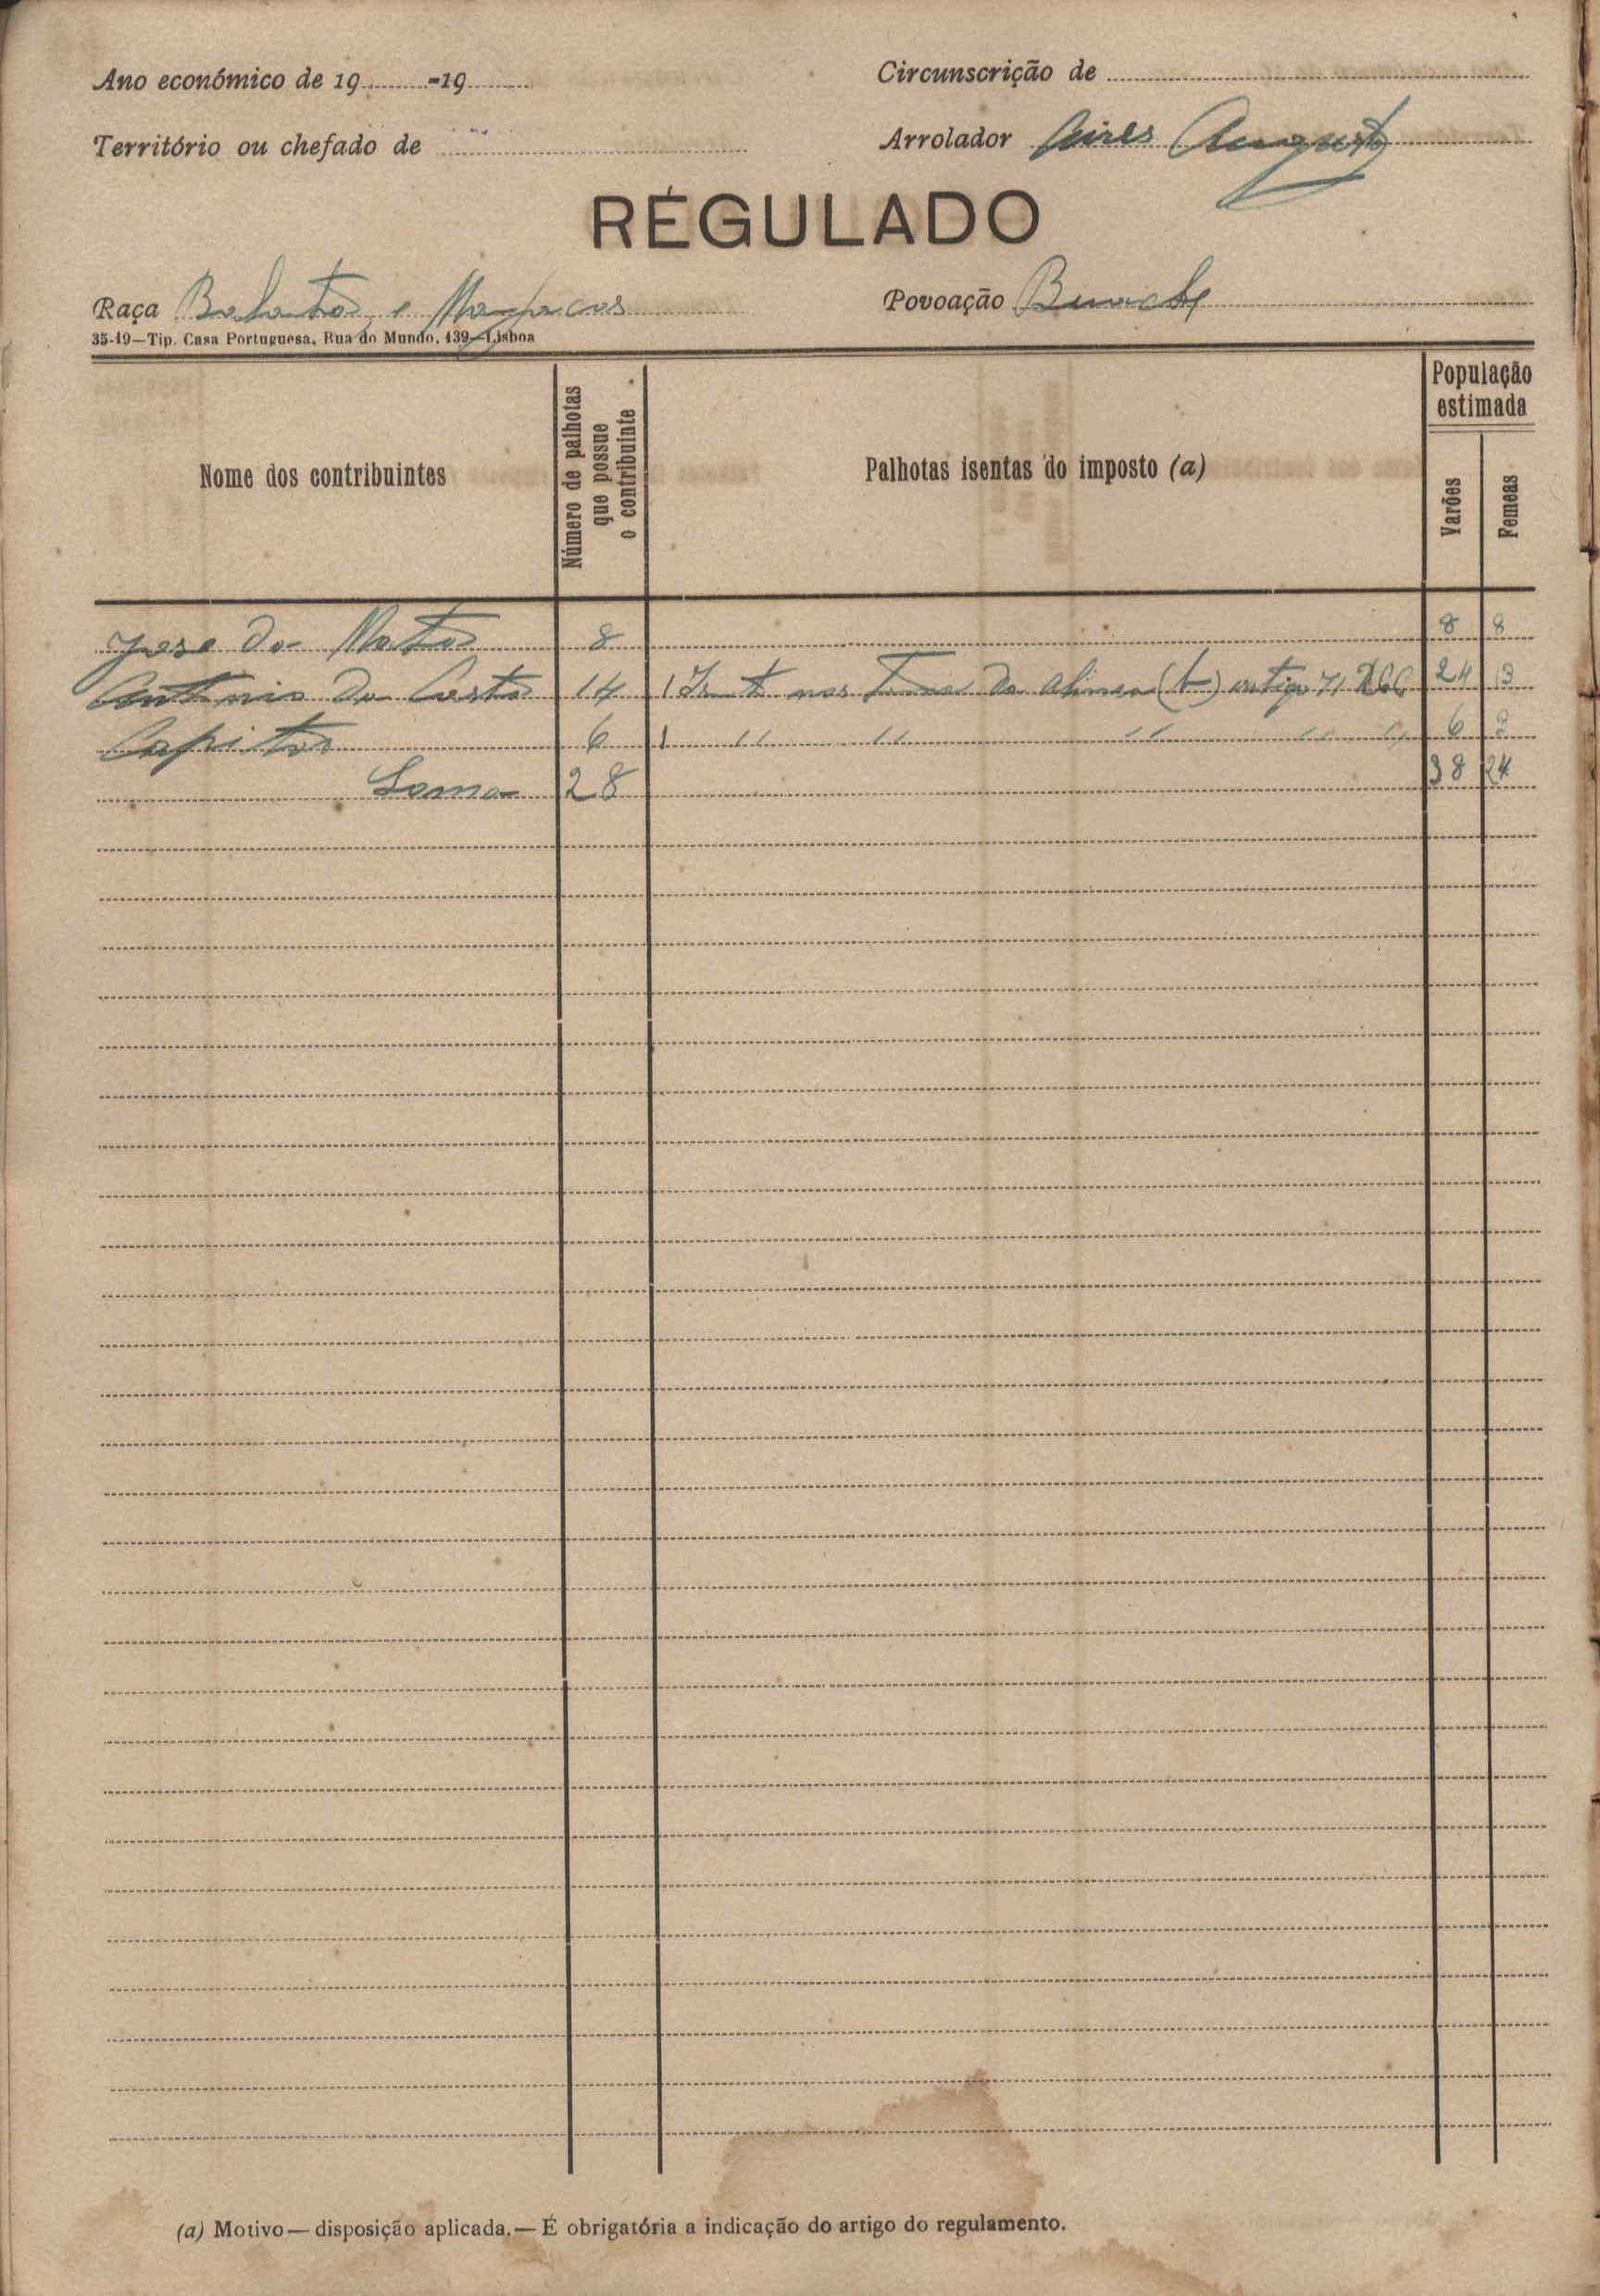 Ano económico de 19........-19........
Circunscrição de
Território ou chefado de
Arrolador Aires Augusto
RÉGULADO
Raça Balantas e Manjacos
Povoação
35-19—Tip. Casa Portuguesa, Rua do Mundo, 139—Lisboa
Nome dos contribuintes
Número de palhotas que possue o contribuinte
Palhotas isentas do imposto (a)
População estimada
Varões
Femeas
José do Matos 8 8 8
António da Costa 14 1 nos da alinea (b) artigo 24 13
Capitos 6 1 " " " " " 6
Soma 28 38 24
(a) Motivo—disposição aplicada.—É obrigatória a indicação do artigo do regulamento.